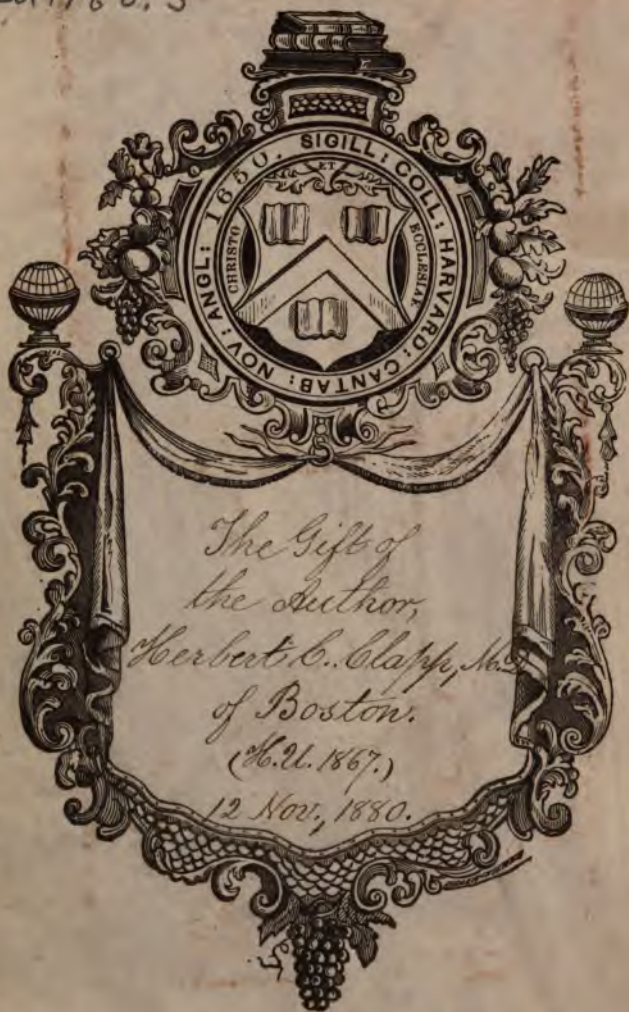 SIGILL: COLL: HARVARD: CANTAB: NOV: ANGL: 1650.
CHRISTO
ET
ECCLESIAE
The Gift of
the Author,
Herbert C. Clapp, M.D.
of Boston.
(H.U. 1867.)
12 Nov., 1880.